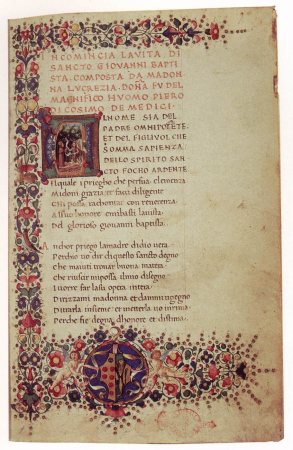 NCOMINCIA LAVITA DI
SANCTO GIOVANNI BAPTI
STA. COMPOSTA DA MADON
NA LVCREZIA. DOÑA FV DEL
MAGNIFICO HVOMO PIERO
DI COSIMO DE MEDICI.
NHOME SIA DEL
PADRE OMNIPOTETE
ET DEL FIGLIVOL CHE
SOMMA SAPIENZA
DELLO SPIRITO SAN
CTO FOCHO ARDENTE
El quale i priegho che per sua clemenza
Mi doni gratia et facci diligente
Chi possa rachontar con reverenza
A suo honore
Del glorioso giovanni baptista.
Anchor priego la madre di dio vera
Perch io vo dir di questo sancto degno
Che m aiuti trovar buona matera
Che riuscir mi possa il mio disegno
far la sua opera intera
Dirizzami madonna et dammi ingegno
insieme et
Perche sie degna dhonore et di stima.